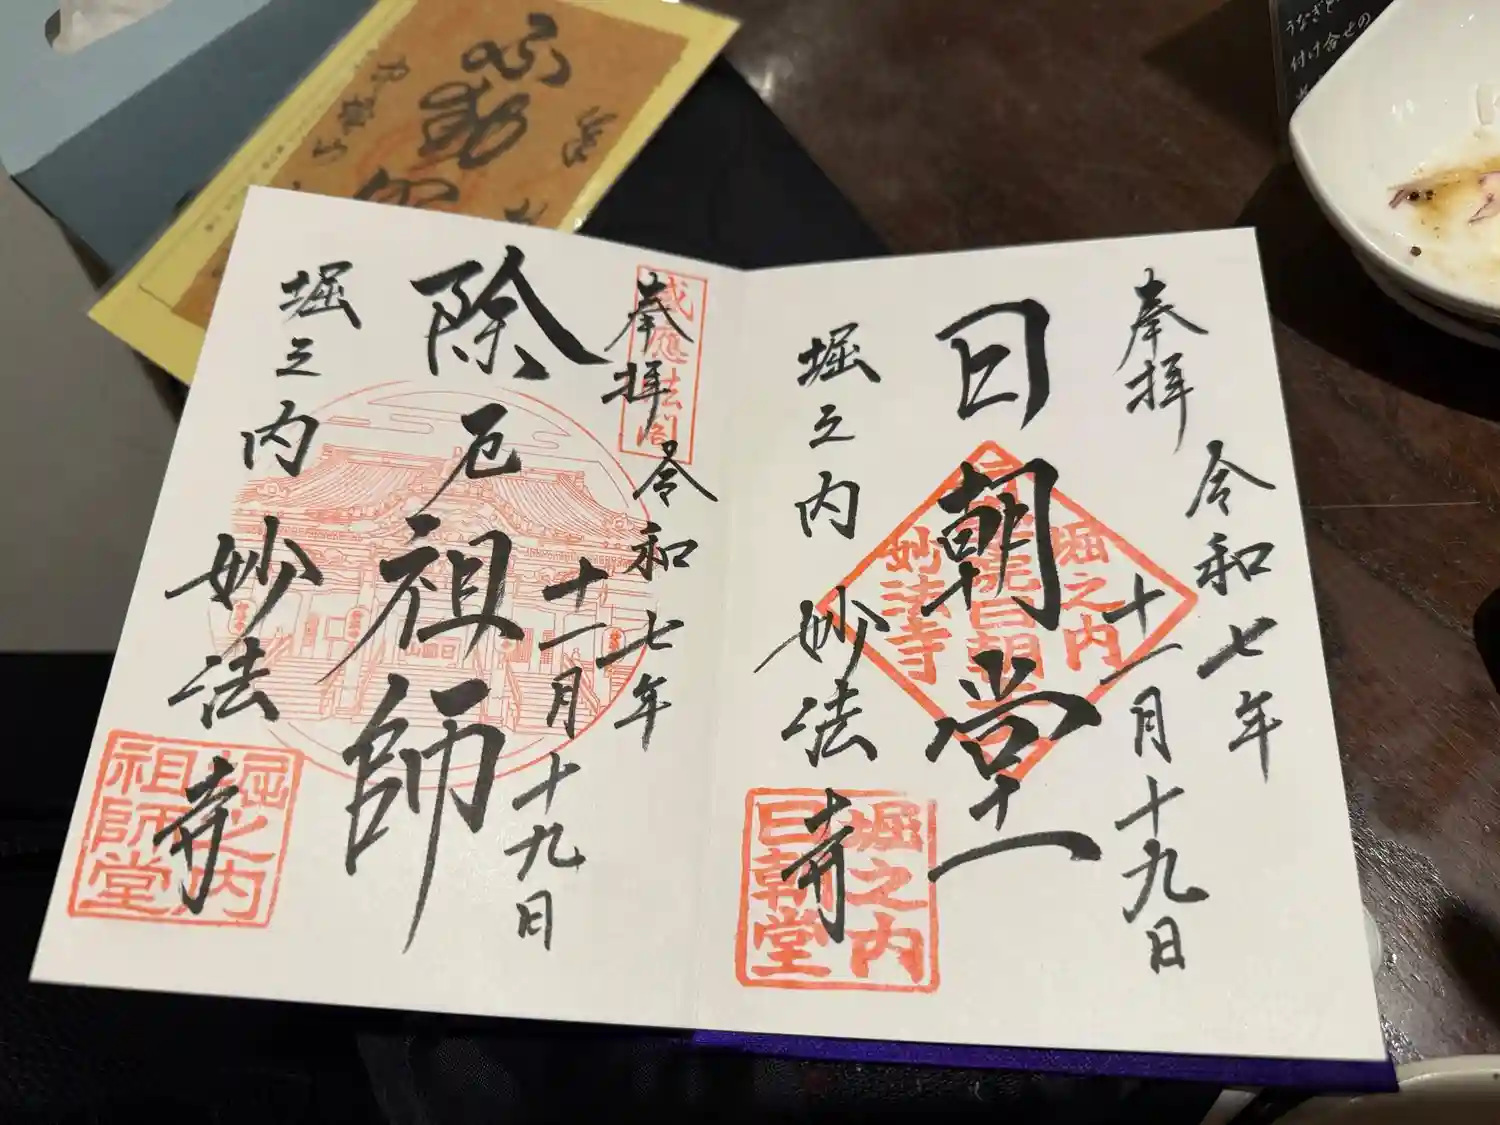 奉拝
令和七年
十一月十九日
日朝堂
堀之内
妙法寺
堀之内
妙法寺
堀之内
日朝堂
奉拝
令和七年
十一月十九日
感應法閣
除厄祖師
堀之内
妙法寺
堀之内
祖師堂
うなぎと
付け合せの